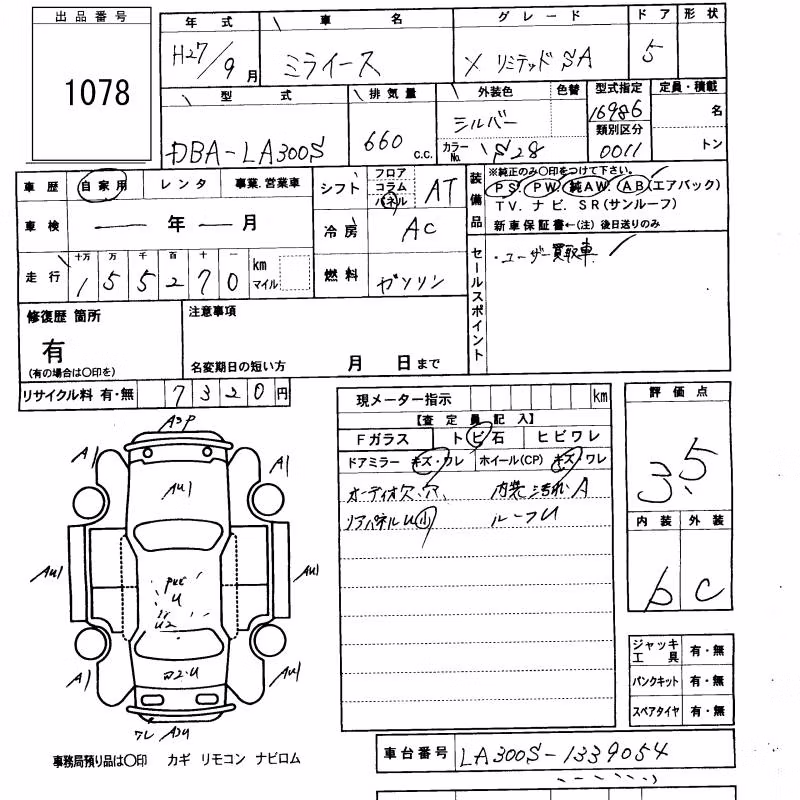 出品番号
1078
年式 車名 グレード ドア 形状
H27/9月 ミライース X リミテッド SA 5
型式 排気量 外装色 色替 型式指定 定員・積載
DBA-LA300S 660 c.c. シルバー 16986 名
カラーNo. S28 類別区分 0011 トン
車歴 自家用 レンタ 事業.営業車
車検 ― 年 ― 月
走行 十万 万 千 百 十 一
1 5 5 2 7 0 km マイル
シフト フロア コラム パネル AT
冷房 AC
燃料 ガソリン
装備品 ※純正のみ〇印をつけて下さい。
PS. PW. 純AW. AB(エアバック)
TV. ナビ. SR(サンルーフ)
新車保証書←(注) 後日送りのみ
セールスポイント
・ユーザー買取車
修復歴 箇所
有
(有の場合は〇印を)
注意事項
名変期日の短い方 月 日まで
リサイクル料 有・無 7 3 2 0 円
現メーター指示 km
【査定員記入】
Fガラス トビ石 ヒビワレ
ドアミラー キズ・ワレ ホイール(CP) キズ・ワレ
オーディオ欠.穴. 内装汚れA
リアパネルU小 ルーフU
評価点
3.5
内装 外装
b C
ジャッキ工具 有・無
パンクキット 有・無
スペアタイヤ 有・無
A3P
A1 A1
AU1
AU1 AU1
U
U2
A1 AU1
ワレ A3U
事務局預り品は〇印 カギ リモコン ナビロム
車台番号 LA300S-1339054